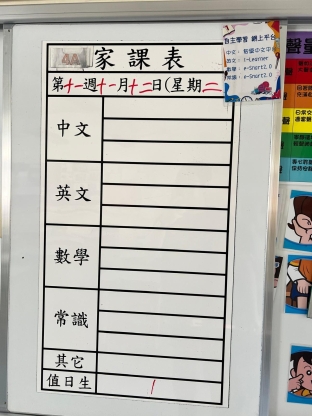 家課表
第十一週十一月十二日(星期二
中文
英文
數學
常識
其它
值日生
1
自主學習 網上平台
中文:
英文: i-Learner
數學: e-Smart2.0
常識: e-Smart2.0
聲